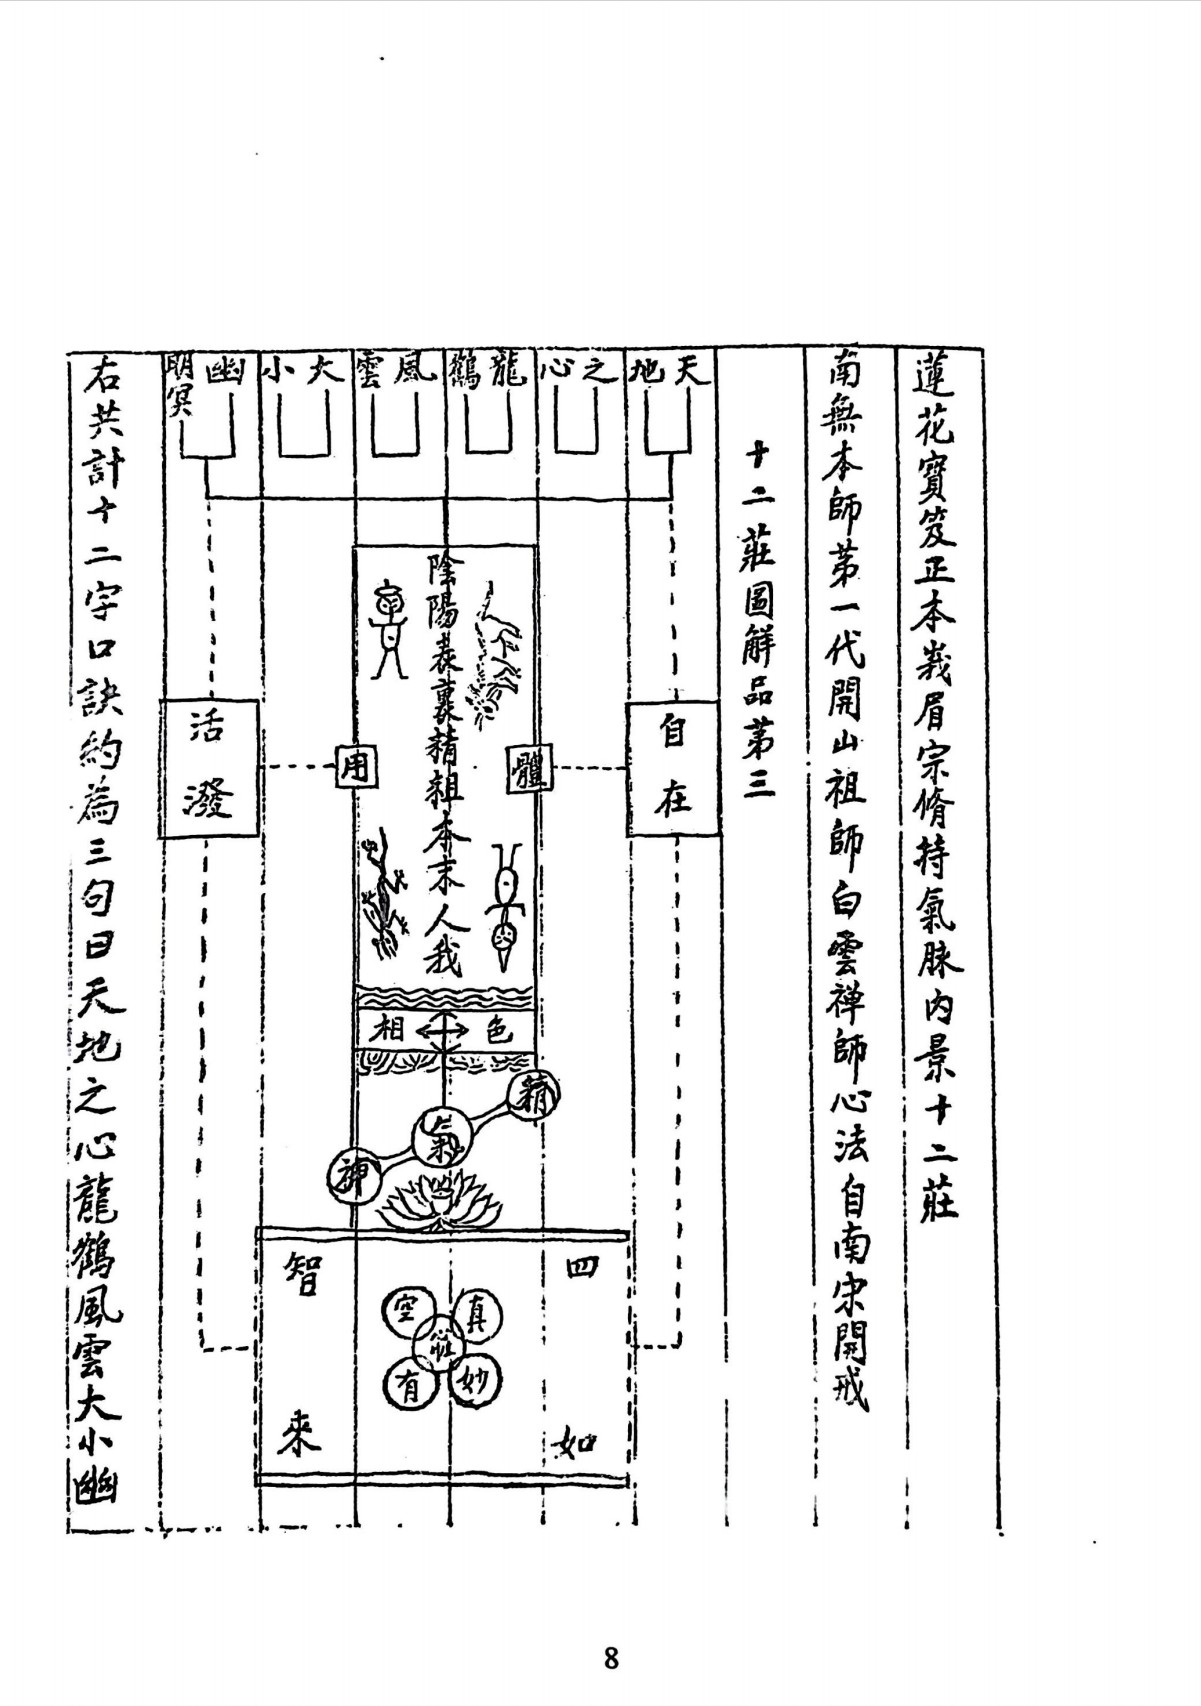 蓮花寶笈正本峩眉宗脩持氣脉內景十二莊
南無本師苐一代開山祖師白雲禅師心法自南宋開戒
十二莊圖解品苐三
天地
之心
龍鶴
風雲
大小
幽明冥
自在
體
用
活潑
陰陽表裏精粗本末人我
色相
精
氣
神
四如來智
真空妙有
莊
右共計十二字口訣約為三句曰天地之心龍鶴風雲大小幽
8